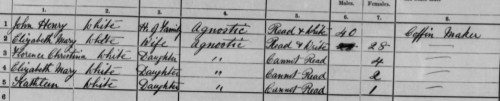 1 2 3 4 5 6. 7. 8.
Males. Females.
1 John Henry White H. of Family Agnostic Read & Write 40 Coffin Maker
2 Elizabeth Mary White Wife Agnostic Read & Write 28 —
3 Florence Christina White Daughter " Cannot Read 4 —
4 Elizabeth Mary White Daughter " Cannot Read 2 —
5 Kathleen White Daughter " Cannot Read 1 —
6